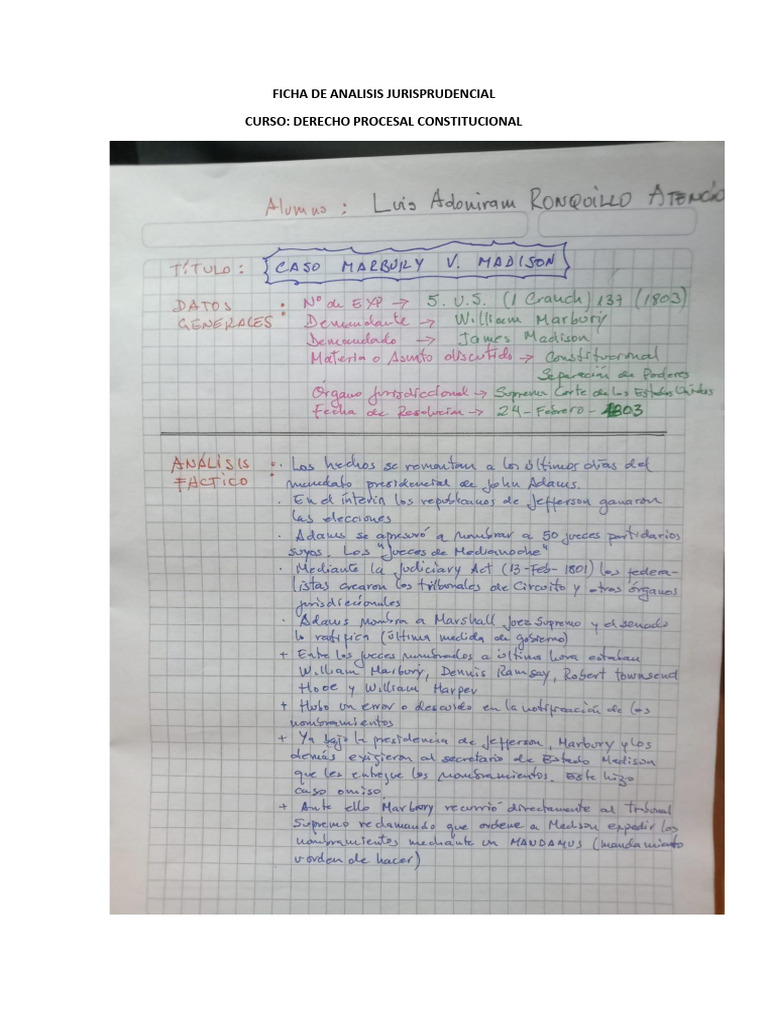 FICHA DE ANALISIS JURISPRUDENCIAL
CURSO: DERECHO PROCESAL CONSTITUCIONAL
Alumno : Luis Adoniram RONQUILLO ATENCIO
TÍTULO : CASO MARBURY V. MADISON
DATOS GENERALES : Nº de EXP → 5. U.S. (1 Cranch) 137 (1803)
Demandante → William Marbury
Demandado → James Madison
Materia o Asunto discutido → Constitucional
Separación de Poderes
Órgano jurisdiccional → Suprema Corte de los Estados Unidos
Fecha de Resolución → 24 - Febrero - 1803
ANÁLISIS FACTICO : · Los hechos se remontan a los últimos días del
mandato presidencial de John Adams.
· En el ínterin los republicanos de Jefferson ganaron
las elecciones
· Adams se apresuró a nombrar a 50 jueces partidarios
suyos. Los "jueces de Medianoche"
· Mediante la Judiciary Act (13-Feb-1801) los federa-
listas crearon los tribunales de Circuito y otros órganos
jurisdiccionales
· Adams nombra a Marshall Juez Supremo y el senado
lo ratifica (última medida de gobierno)
+ Entre los jueces nombrados a última hora estaban
William Marbury, Dennis Ramsay, Robert Townsend
Hooe y William Harper
+ Hubo un error o descuido en la notificación de los
nombramientos
+ Ya bajo la presidencia de Jefferson, Marbury y los
demás exigieron al secretario de Estado Madison
que les entregue los nombramientos. Este hizo
caso omiso
+ Ante ello Marbury recurrió directamente al Tribunal
Supremo reclamando que ordene a Madison expedir los
nombramientos mediante un MANDAMUS (mandamiento
u orden de hacer)